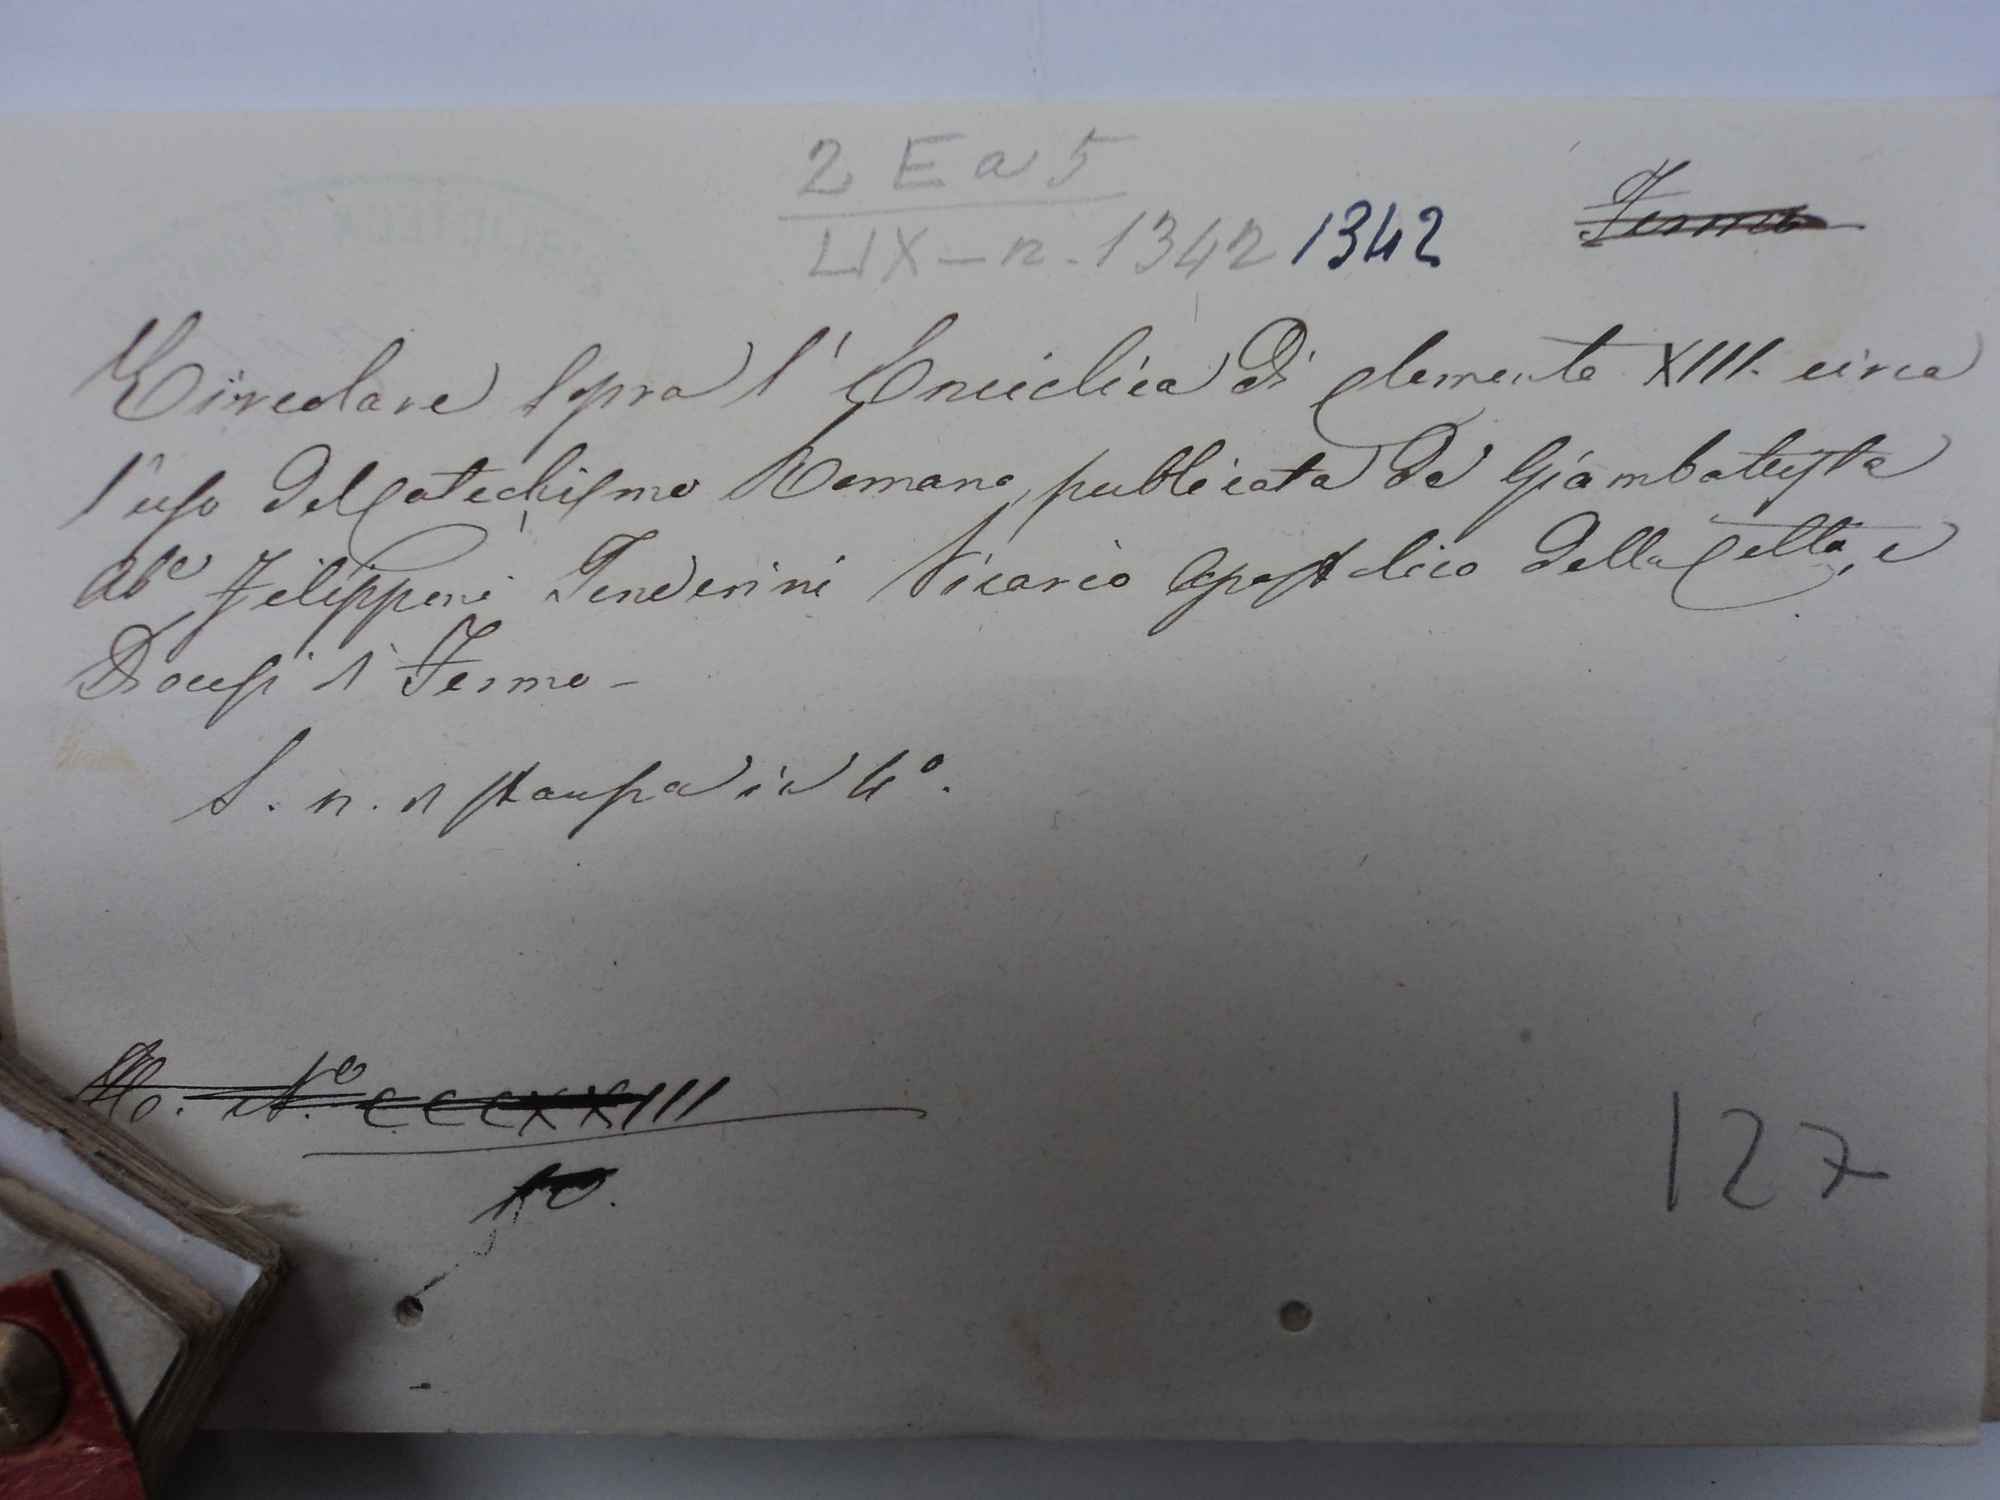 2 E a 5
LIX - n. 1342 1342
Fermo
Circolare sopra l'Enciclica di Clemente XIII. circa
l'uso del Catechismo Romano, pubblicata da Giambattista
Abe Filipponi Tenderini Vicario Apostolico della Città, e
Diocesi di Fermo -
S. n. di stampa in 4º.
Nº CCCXXIII
127